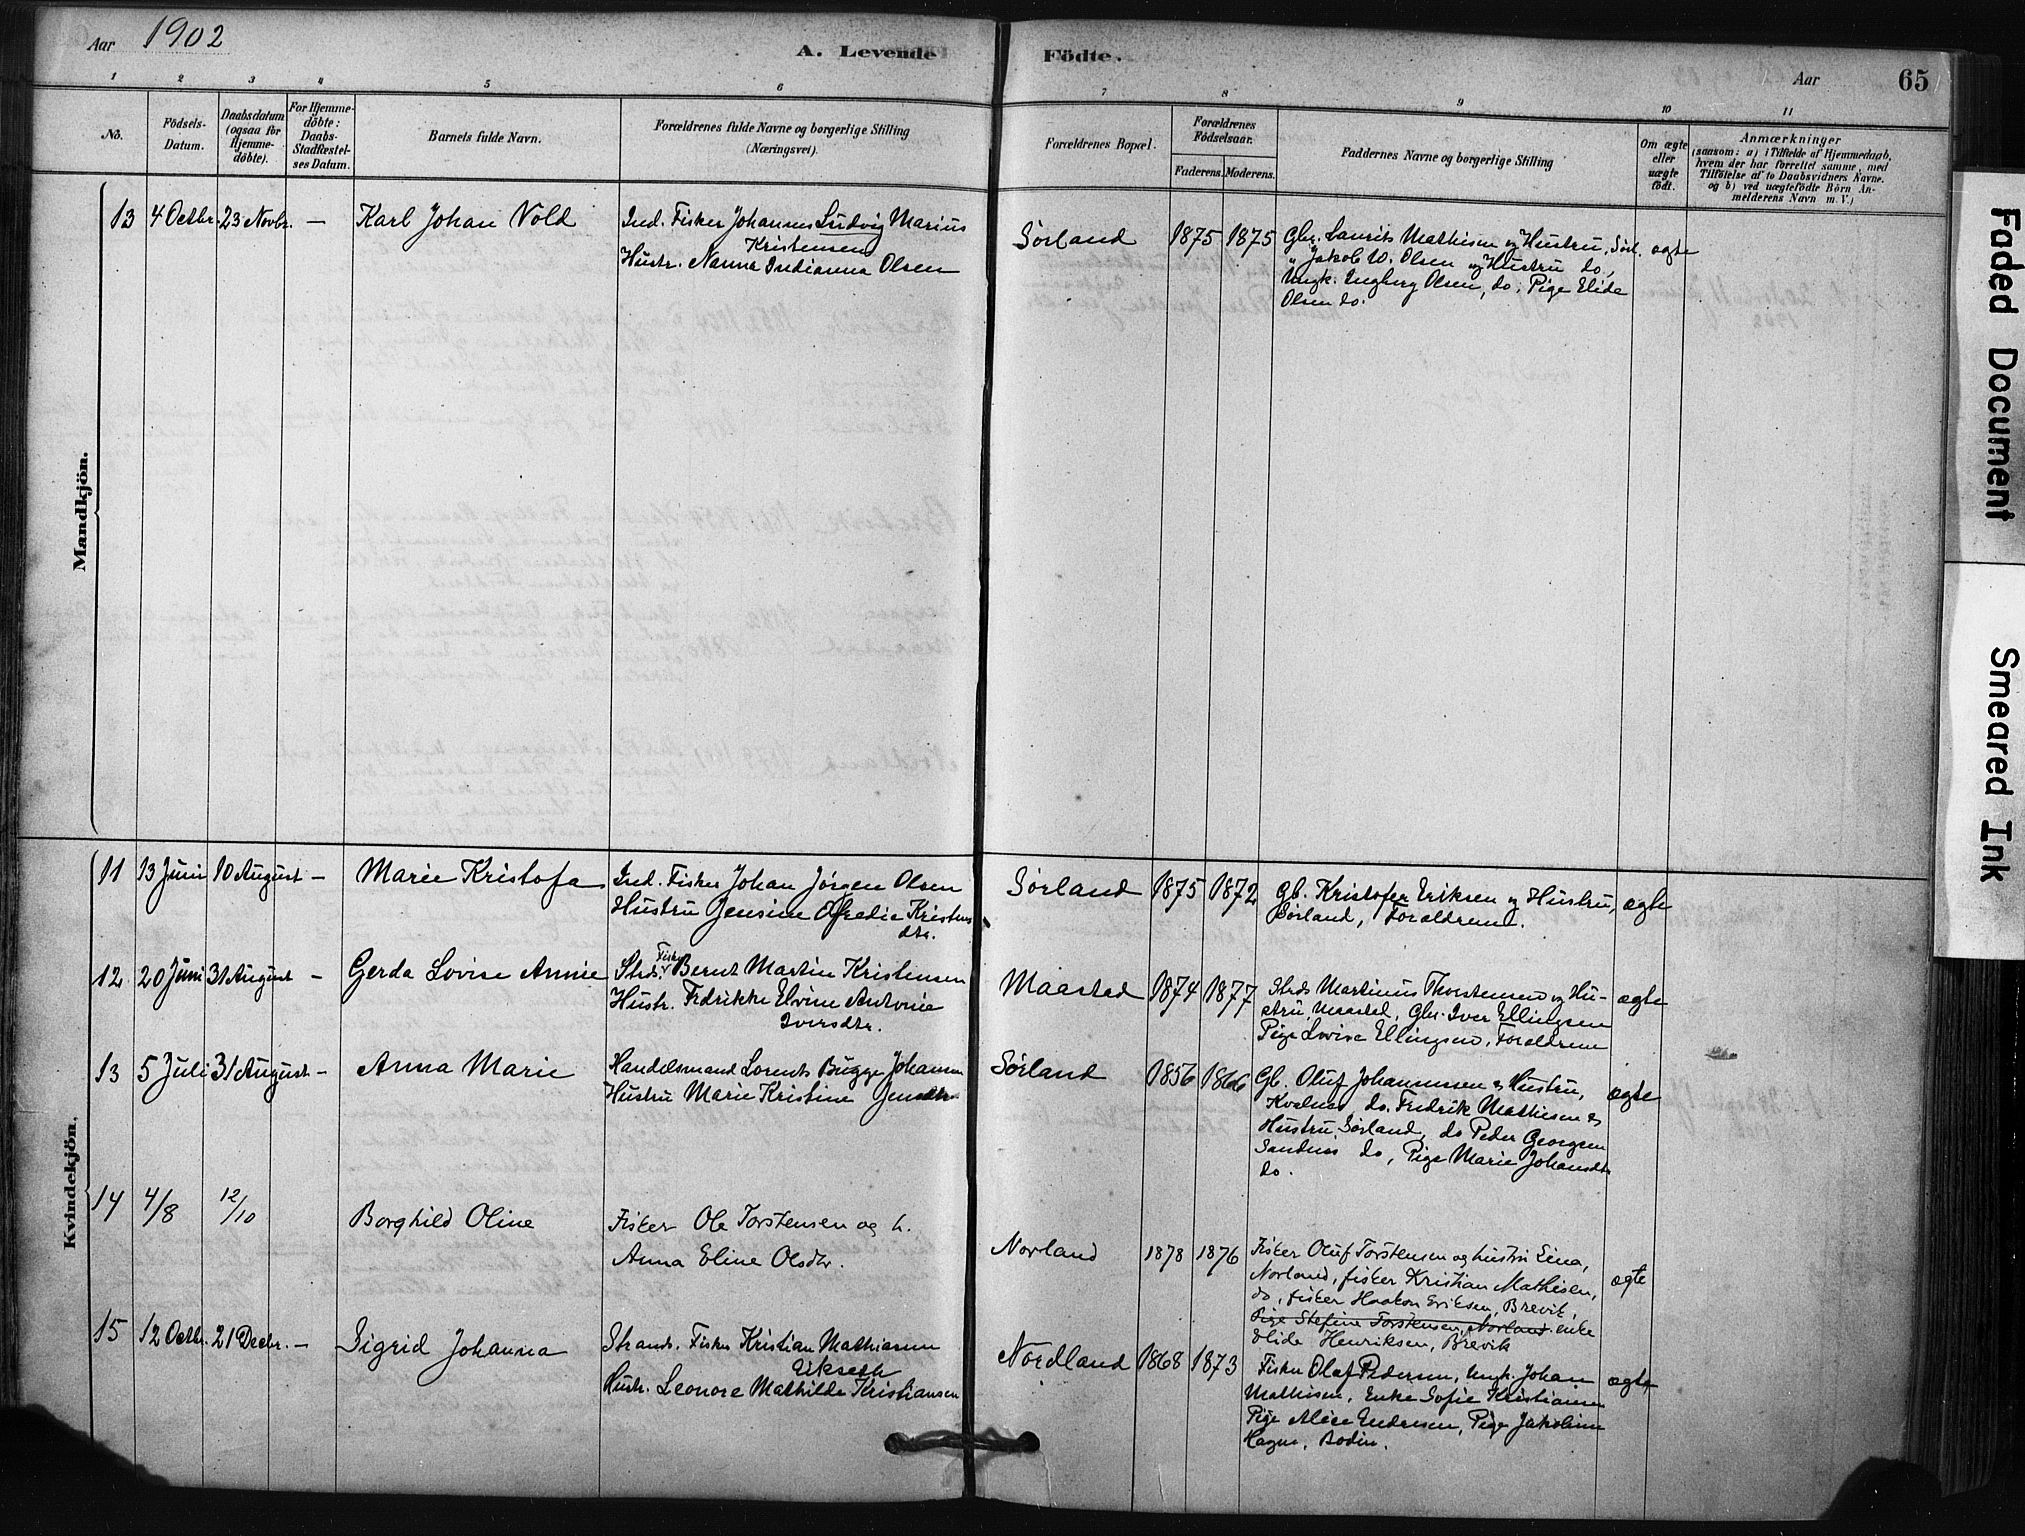 Aar 1902
A. Levende Födte.
Aar 65
1 2 3 4 5 6 7 8 9 10 11
No.
Födsels-Datum.
Daabsdatum (ogsaa for Hjemme-döbte).
For Hjemme-döbte: Daabs-Stadfæstel-ses Datum.
Barnets fulde Navn.
Forældrenes fulde Navne og borgerlige Stilling (Næringsvei).
Forældrenes Bopæl.
Forældrenes Födselsaar.
Faderens. Moderens.
Faddernes Navne og borgerlige Stilling
Om ægte eller uægte födt.
Anmærkninger
(saasom: a) i Tilfælde af Hjemmedaab,
hvem der har forrettet samme, med
Tilföielse af to Daabsvidners Navne.
og b) ved uægtefödte Börn An-
melderens Navn m. V.)
Mandkjön.
13 4 Octbr. 23 Novbr. — Karl Johan Vold
Ind. Fisker Johannes Ludvig Marius
Kristensen
Hustr. Nanna Indianna Olsen
Sörland 1875 1875
Gbr. Laurits Mathisen og Hustru, Sörl.
" Jakob W. Olsen og Hustru do,
Ungk. Ingberg Olsen, do, Pige Elide
Olsen do.
ægte
Kvindekjön.
11 13 Juni 10 August — Marie Kristofa
Ind. Fisker Johan Jörgen Olsen
Hustru Jensine Ofredie Kristens
dtr.
Sörland 1875 1872
Gb. Kristofer Eriksen og Hustru,
Sörland, Forældrene.
ægte
12 20 Juni 31 August — Gerda Lovise Annie
Strds. Fisker Bernt Martin Kristensen
Hustr. Fredrikke Elvine Antonie
Iversdtr.
Maastad 1874 1877
Strds Martinus Thorstensen og Hu-
stru, Maastad, Gbr. Iver Ellingsen
Pige Lovise Ellingsen, Forældrene
ægte
13 5 Juli 31 August — Anna Marie
Handelsmand Lorents Bugge Johansen
Hustru Marie Kristine Jensdtr
Sörland 1856 1866
Gb. Oluf Johannessen og Hustru,
Kvalnes, do. Fredrik Mathisen og
Hustru, Sörland, do Peder Georgsen
Sandnes do, Pige Marie Johansdtr
do.
ægte
14 4/8 12/10 Borghild Oline
Fisker Ole Torstensen og h.
Anna Eline Olsdtr.
Norland 1878 1876
Fisker Oluf Torstensen og hustru Lina,
Norland, fisker Kristian Mathisen,
do, fisker Haakon Eriksen, Brevik,
Pige Stefine Torstensen, Norland enke
Elide Henriksen, Brevik
ægte
15 12 Octbr. 21 Decbr. — Sigrid Johanna
Strands. Fisker Kristian Mathiasen
Eikseth
Hustr. Leonore Mathilde Kristiansen
Nordland 1868 1873
Fisker Olaf Pedersen, Ungk. Johan
Mathisen, Enke Sofie Kristiansen
Pige Alice Endresen, Pige Jakobine
Hagen, Bodin.
ægte
Faded Document
Smeared Ink